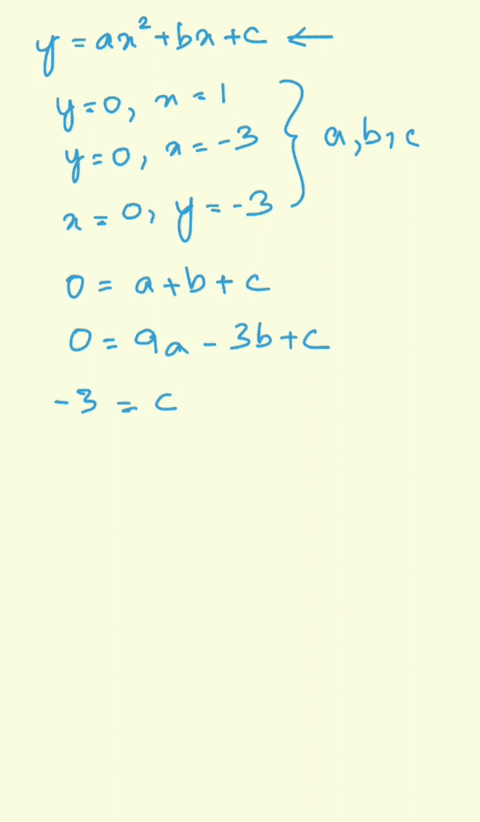 y = ax² + bx + c ←
y = 0, x = 1
y = 0, x = -3 } a, b, c
x = 0, y = -3
0 = a + b + c
0 = 9a - 3b + c
-3 = c